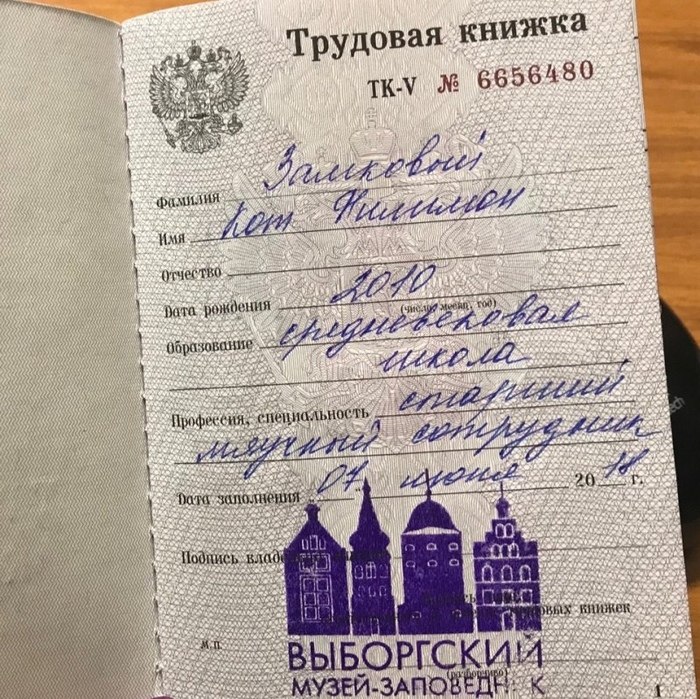 Трудовая книжка
ТК-V № 6656480
Фамилия Замковый
Имя Кот Филимон
Отчество
Дата рождения 2010
(число, месяц, год)
Образование средневековая
школа
Профессия, специальность старший
мяучный сотрудник
Дата заполнения 07 июня 2018 г.
Подпись
книжек
М.П.
ВЫБОРГСКИЙ
(разборчиво)
МУЗЕЙ-ЗАПОВЕДНИК